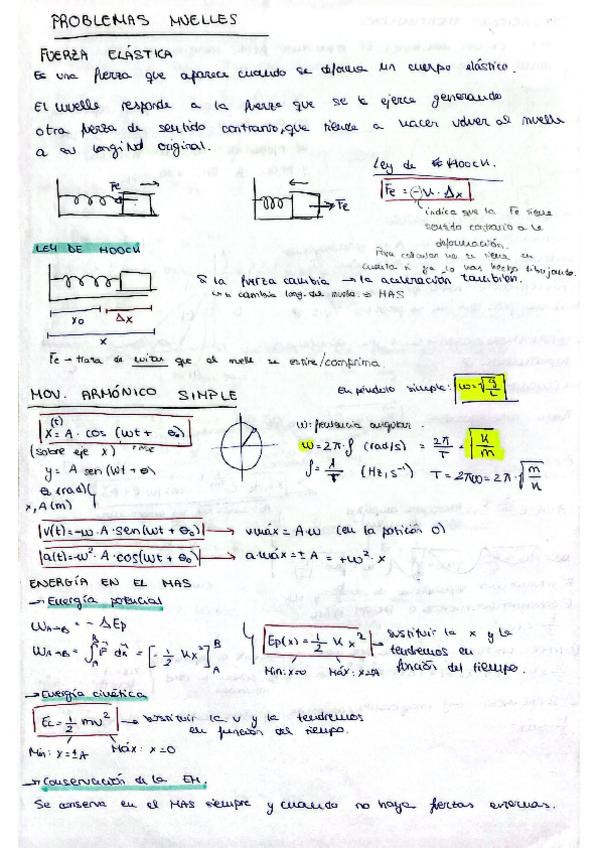 PROBLEMAS MUELLES
FUERZA ELÁSTICA
Es una fuerza que aparece cuando se deforma un cuerpo elástico.
El muelle responde a la fuerza que se le ejerce generando
otra fuerza de sentido contrario, que tiende a hacer volver al muelle
a su longitud original.
Ley de HOOCK.
Fe = - K · Δx
Fe
Fe
indica que la Fe tiene
sentido contrario a la
deformación.
Para calcular no se tiene en
cuenta si ya lo has hecho dibujando.
LEY DE HOOCK
Si la fuerza cambia → la aceleración también.
cambia long. del muelle ⇒ MAS
x0 Δx
x
Fe → trata de evitar que el muelle se estire/comprima.
MOV. ARMÓNICO SIMPLE
En péndulo simple: ω = √g/L
x(t) = A · cos (ωt + θ0)
(sobre eje x)
y = A sen (ωt + θ)
θ (rad)
x, A (m)
ω: frecuencia angular.
ω = 2π · f (rad/s) = 2π/T = √K/m
(Hz, s⁻¹)
v(t) = -ω · A · sen(ωt + θ0) → vmáx = A·ω (en la posición 0)
a(t) = -ω² · A · cos(ωt + θ0) → a máx = ± A = +ω² · x
ENERGÍA EN EL MAS
→ Energía potencial
WA→B = - ΔEp
WA→B = ∫ F dx = [- 1/2 Kx²] B A
Ep(x) = 1/2 K x² → sustituir la x y la
tendremos en
función del tiempo.
Mín: x=0 Máx: x=±A
→ Energía cinética
Ec = 1/2 mv² → sustituir la v y la tendremos
en función del tiempo.
Mín: x=±A Máx: x=0
→ Conservación de la EM.
Se conserva en el MAS siempre y cuando no haya fuerzas externas.